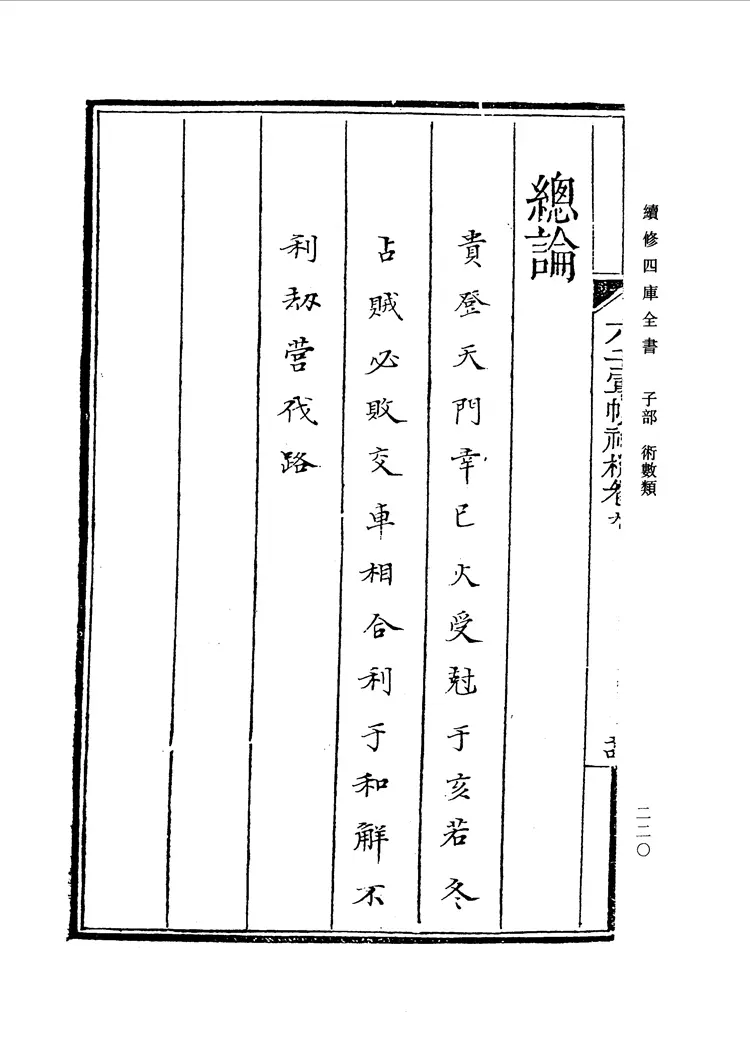 續修四庫全書　子部　術數類
二二〇
總論
貴登天門幸巳火受尅于亥若冬
占賊必敗交車相合利于和解不
利刼營伐路